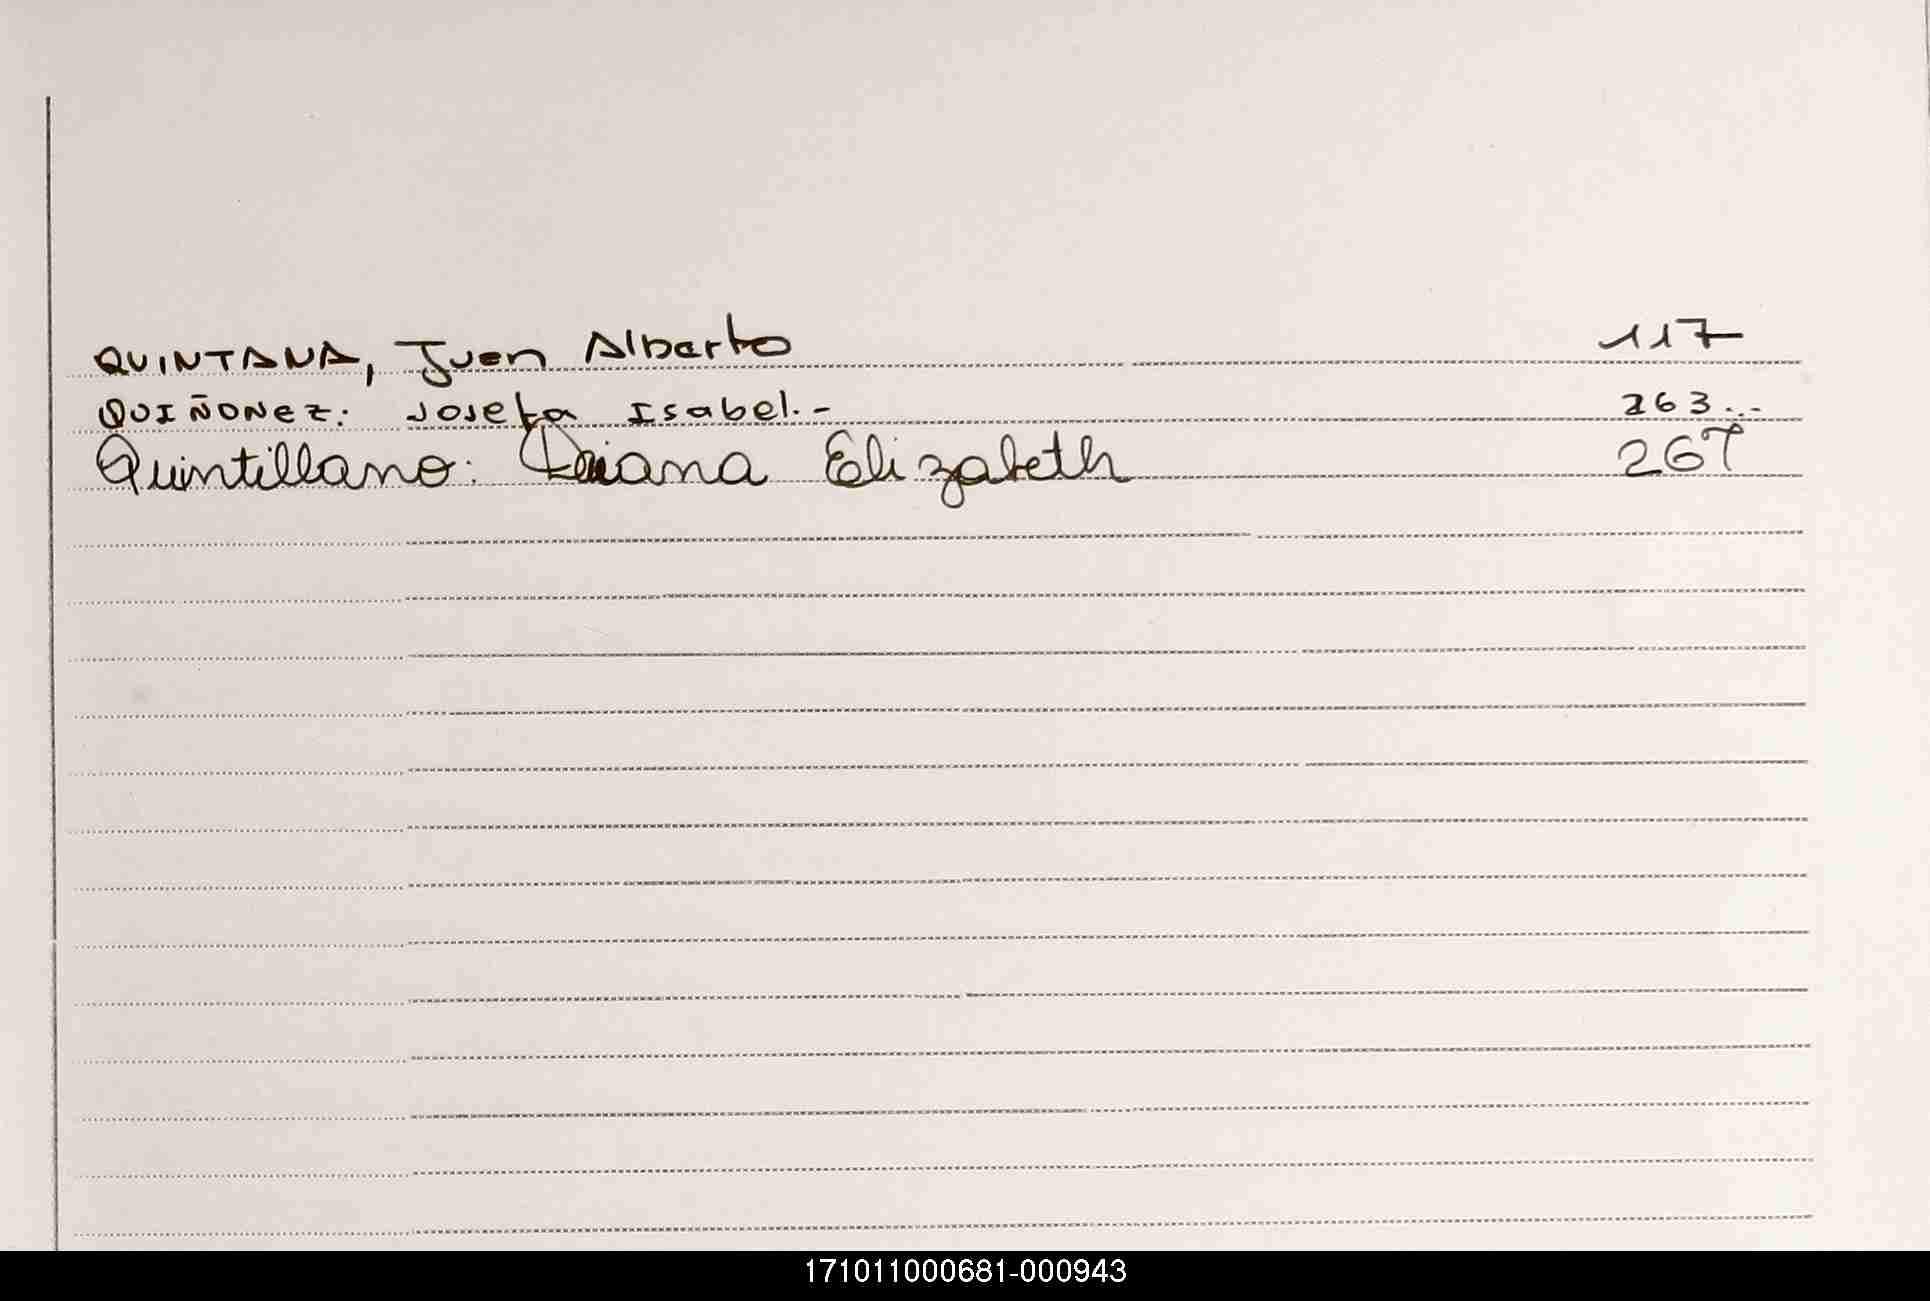 QUINTANA, Juan Alberto 117
QUIÑONEZ: Josefa Isabel.- 263...
Quintillano: Daiana Elizabeth 267
171011000681-000943